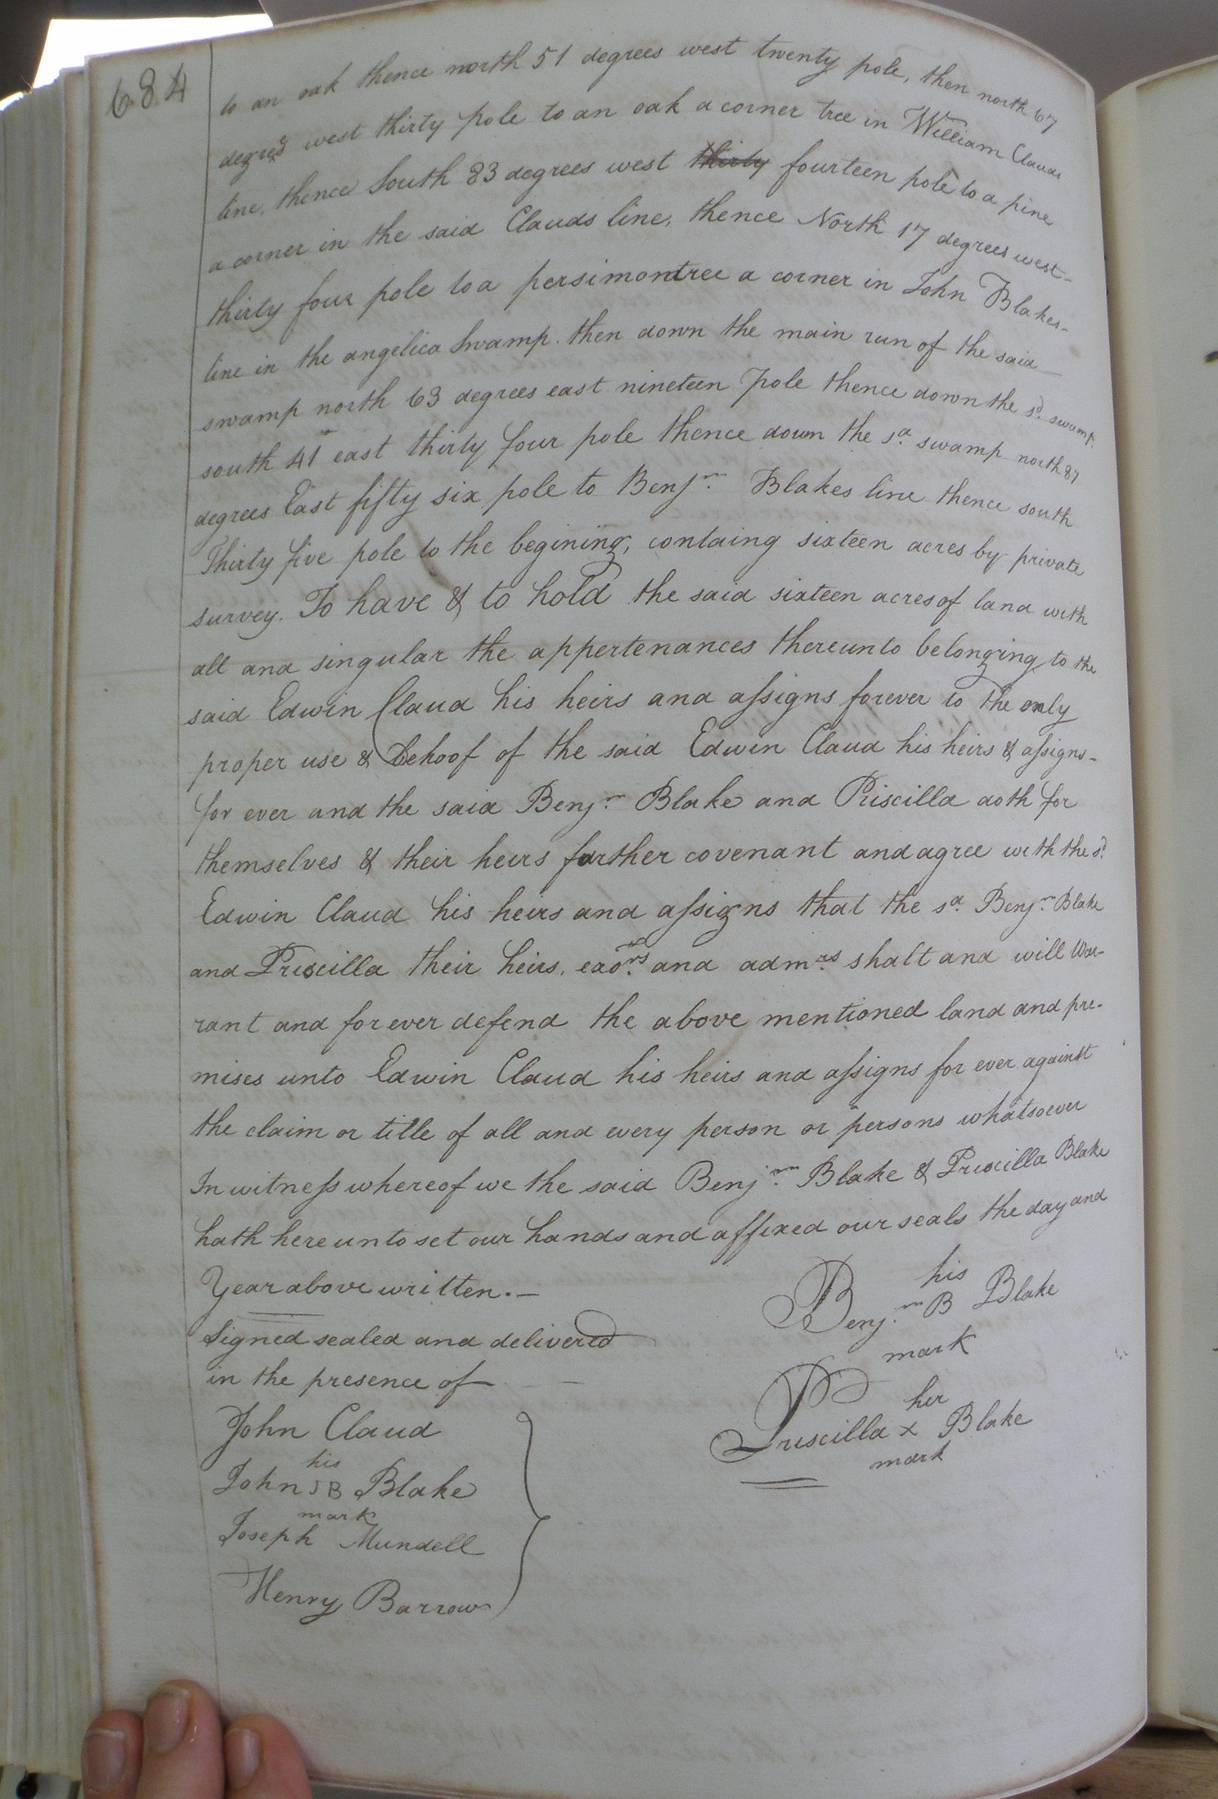 684
to an oak thence north 51 degrees west twenty pole, then north 67
degres west thirty pole to an oak a corner tree in William Clauds
line, thence South 83 degrees west thirty fourteen pole to a pine
a corner in the said Clauds line, thence North 17 degrees west-
thirty four pole to a persimontree a corner in John Blakes-
line in the angelica Swamp. then down the main run of the said
swamp north 63 degrees east nineteen pole thence down the sd. swamp
south 41 east thirty four pole thence down the sd. swamp north 87
degrees East fifty six pole to Benjmn. Blakes line thence south
Thirty five pole to the begining, containg sixteen acres by private
survey. To have & to hold the said sixteen acres of land with
all and singular the appertenances thereunto belonging to the
said Edwin Claud his heirs and assigns forever to the only
proper use & behoof of the said Edwin Claud his heirs & assigns-
for ever and the said Benjn. Blake and Priscilla doth for
themselves & their heirs farther covenant and agree with the sd.
Edwin Claud his heirs and assigns that the sd. Benjn. Blake
and Priscilla their heirs, exors. and admrs. shall and will War-
rant and for ever defend the above mentioned land and pre-
mises unto Edwin Claud his heirs and assigns for ever against
the claim or title of all and every person or persons whatsoever
In witness whereof we the said Benjmn. Blake & Priscilla Blake
hath hereunto set our hands and affixed our seals the day and
Year above written.—
Signed sealed and delivered
in the presence of
his
Benjmn. B Blake
mark
her
Priscilla x Blake
mark
John Claud
his
John JB Blake
mark
Joseph Mundell
Henry Barrow